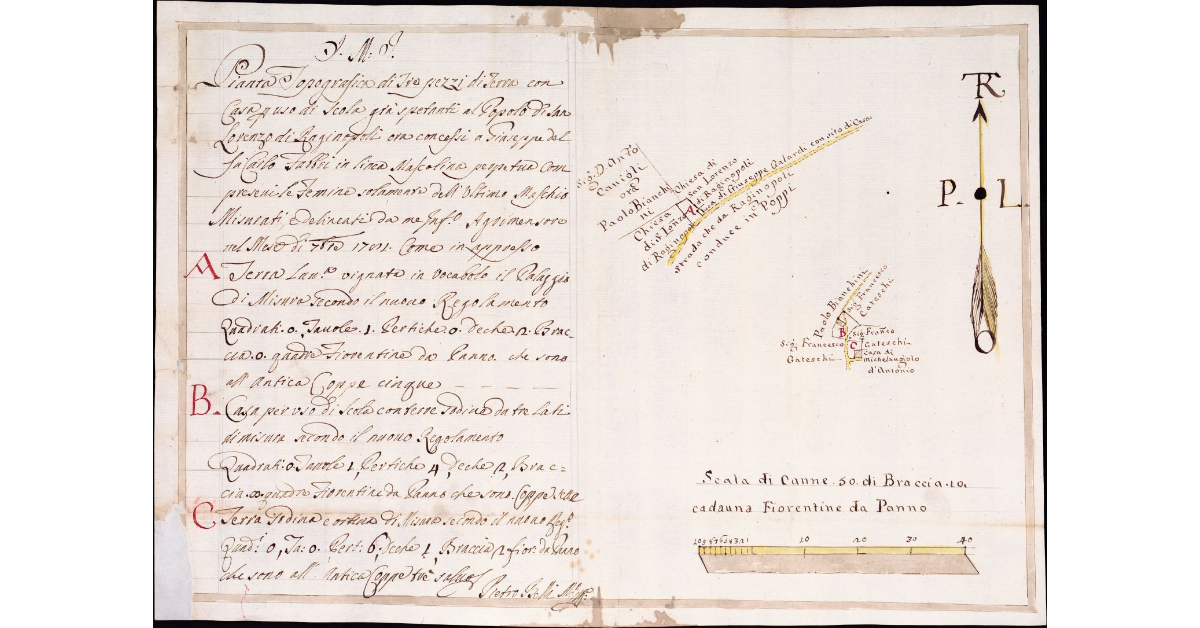 J. M. J.
Pianta Topografica di Tre pezzi di Terra con
Casa p uso di Scola già spetanti al Popolo di San
Lorenzo di Raginopoli ora concessi a Giuseppe del
fu Carlo Fabbi in linea Mascolina perpetua Com
presevi le Femine solamente dell'Ultimo Maschio
Misurati, e delineati da me Inf.o Agrimensore
nel Mese di 7bre Come in appresso
A
Terra Lau.a vignata in Vocabolo il Palaggio
di Misura secondo il nuovo Regolamento
Quadrati. 0. Tavole. 1. Pertiche. 0. deche. 2. Brac=
cia. 0. quadre Fiorentine da Panno. che sono
all'Antica Coppe cinque
B.
Casa per uso di Scola con terre Sodive da tre Lati
di misura secondo il nuovo Regolamento
Quadrati. 0. Tavole 1, Pertiche 4, deche 2, Brac=
cia quadre Fiorentine da Panno che sono Coppe sette
C
Terra Sodiva e ortiva di Misura secondo il nuovo Reg.o
Quad.i 0, Ta: 0. Pert: 6, deche 1 Braccia 2 fior: da Panno
che sono all'Antica Coppe tre
Pietro
Sig. D. Anto
Canioli
Paolo Bianchi
ni
Chiesa di
San Lorenzo
di Raginopoli
Chiesa
di S. Lorenzo
di Raginopoli
A
Luca di Giuseppe Galardi con sito di Casa
Strada che da Raginopoli
conduce in Poppi
Paolo Bianchini
Sig. Francesco
Gateschi
B
Sig. Franco
Gateschi
Sig. Francesco
Gateschi
C
Casa di
Michelangiolo
d'Antonio
TR
P.
L.
Scala di Canne. 50. di Braccia. 10.
cadauna Fiorentine da Panno
10 9 8 7 6 5 4 3 2 1 10 20 30 40